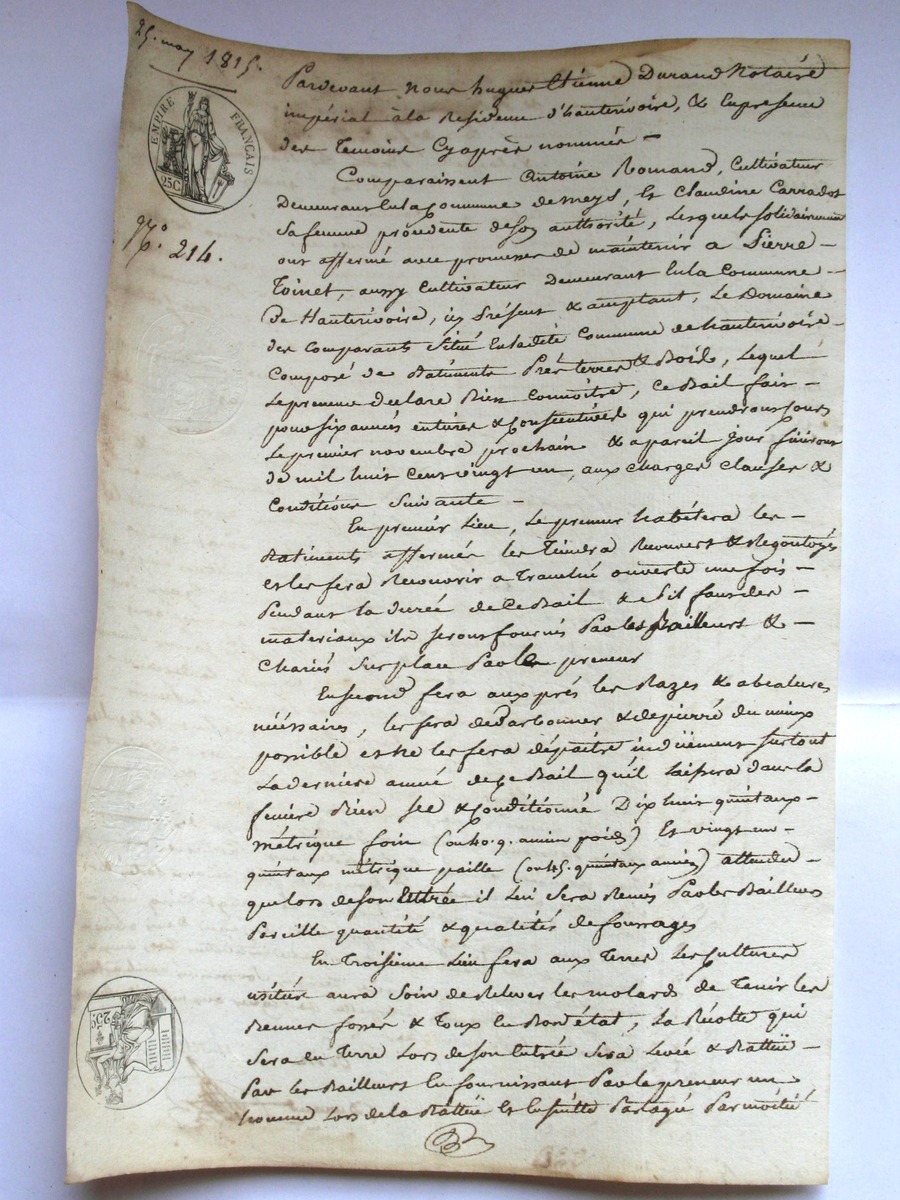 25. may 1815.
EMPIRE FRANÇAIS
25C
N.º 214.
Pardevant Nous hugues Etienne Durand Notaire
impérial à la Residence d'hauterivoire, & En presence
des Temoins Cy après nommés –
Comparaissent Antoine Romand, Cultivateur
Demeurant En la Commune de meys, Et Claudine Carradot
Sa femme procedente de son authorité, Lesquels solidairement
ont affermé avec promesse de maintenir a Pierre –
Toinet, aussy Cultivateur Demeurant En la Commune –
De Hauterivoire, icy Présent & acceptant, Le Domaine
des comparants Situé En ladite Commune de hauterivoire –
Composé de Batiments Prés terres & Bois, Lequel
Le preneur declare Bien Connoitre, Ce Bail fait –
pour six années entières & Consécutives qui prendront cours
Le premier novembre prochain & a pareil jour finiront
de mil huit Cent vingt un, aux charges clauses &
Conditions Suivante –
En premier Lieu, Le preneur habitera les –
Batiments affermés les Tiendra Recouvert & Regoutoyés
et les fera Recouvrir a Travelué ouverte une fois –
Pendant la durée de Ce Bail & s'il faut des –
materiaux ils seront fournis Par les Bailleurs &
Chariés Sur place Par le preneur
En second fera aux prés les Razes &
nécéssaires, les fera & depierré du mieux
possible et ne les fera dépaitre induëment surtout
La derniere année de Ce Bail qu'il Laissera dans la
feniere Bien sec & Conditionné Dix huit quintaux –
métrique foin (ou 40. q. ancien poids) Et vingt un –
quintaux métrique paille (ou 45. quintaux anciens) attendu –
que lors de son Entrée il Lui Sera Remis Par les Bailleurs
Pareille quantité & qualités de fourrages
En Troisieme Lieu fera aux Terres Les Cultures
usitées aura Soin de Relever les molards de Tenir les
fossés & Tous En Bon état, La Récolte qui
Sera En Terre Lors de son Entrée Sera Levée & Battue –
Par les Bailleurs En fournissant Par le preneur un –
homme Lors de la Battue Et Ensuitte Partagée Par moitié
25C.